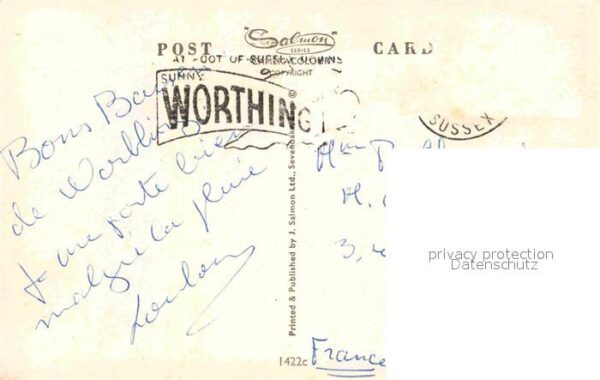 POST "Salmon" CARD
SERIES
CAMERACOLOUR
© COPYRIGHT
AT FOOT OF SUSSEX DOWNS
SUNNY
WORTHING
SUSSEX
Bons Baisers
de Worthing
Je me porte bien
malgré la pluie
M.
3, 
France
Printed & Published by J. Salmon Ltd., Sevenoaks ©
1422c
privacy protection
Datenschutz